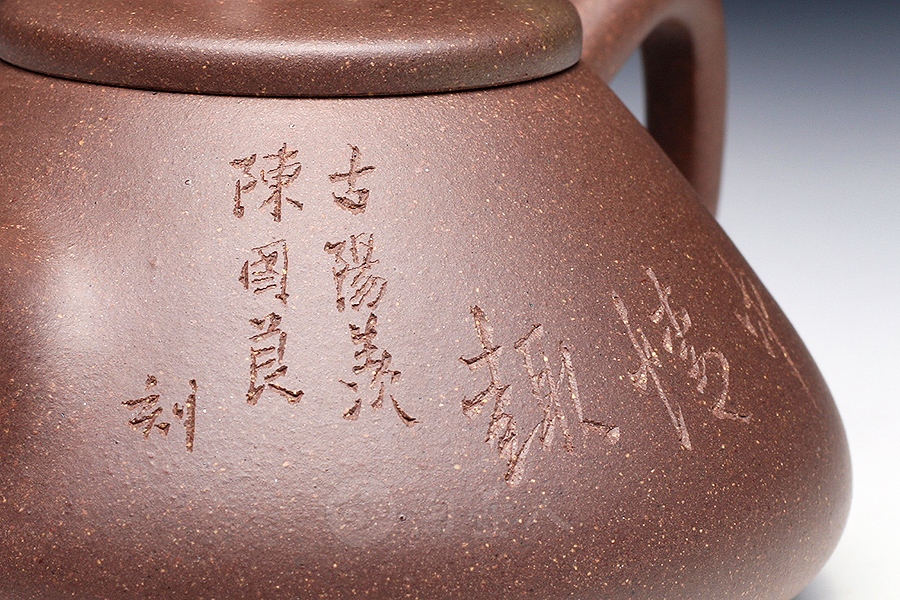 情
趣
古陽羨
陳國良
刻